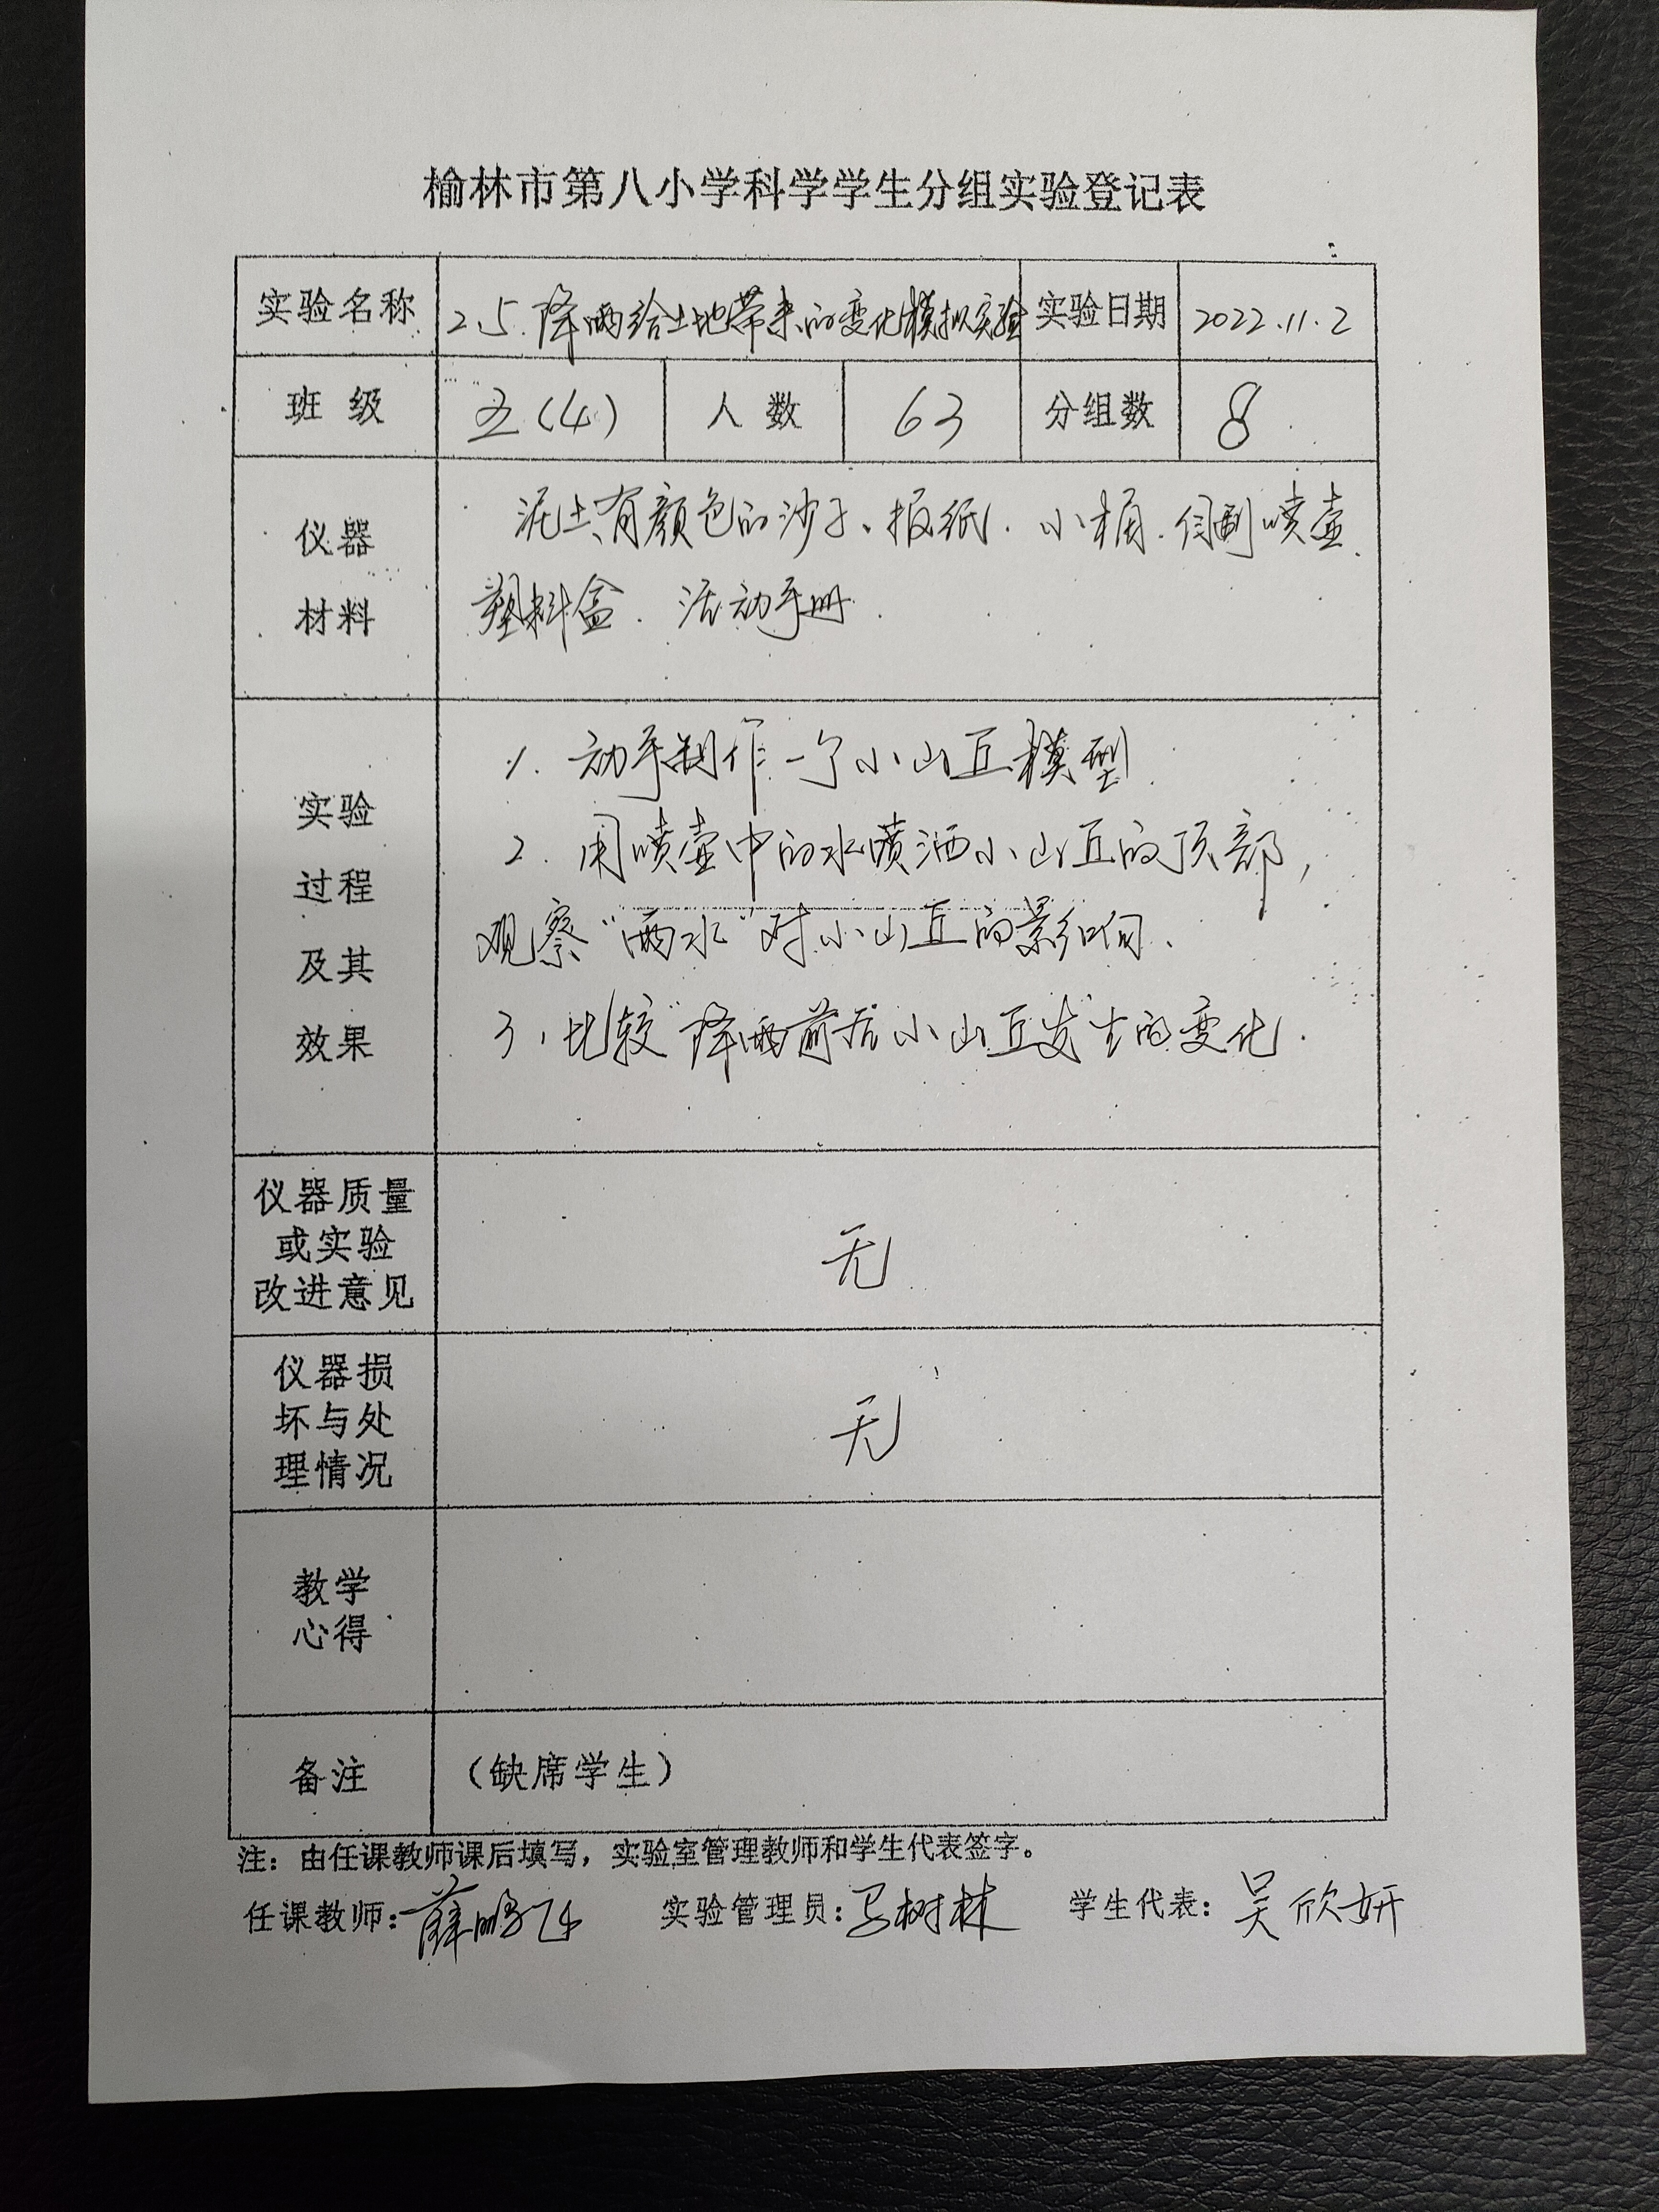 榆林市第八小学科学学生分组实验登记表
实验名称 2.5.降雨给土地带来的变化模拟实验 实验日期 2022.11.2
班 级 五(4) 人 数 63 分组数 8
仪器
材料
泥土、有颜色的沙子、报纸.小桶. 喷壶.
塑料盒. 活动手册.
实验
过程
及其
效果
1. 动手制作一个小山丘模型.
2. 用喷壶中的水喷洒小山丘的顶部,
观察"雨水"对小山丘的影响.
3、比较"降雨"前后小山丘发生的变化.
仪器质量
或实验
改进意见
无
仪器损
坏与处
理情况
无
教学
心得
备注 (缺席学生)
注：由任课教师课后填写，实验室管理教师和学生代表签字。
任课教师：薛鹏飞 实验管理员：马树林 学生代表：吴欣妍